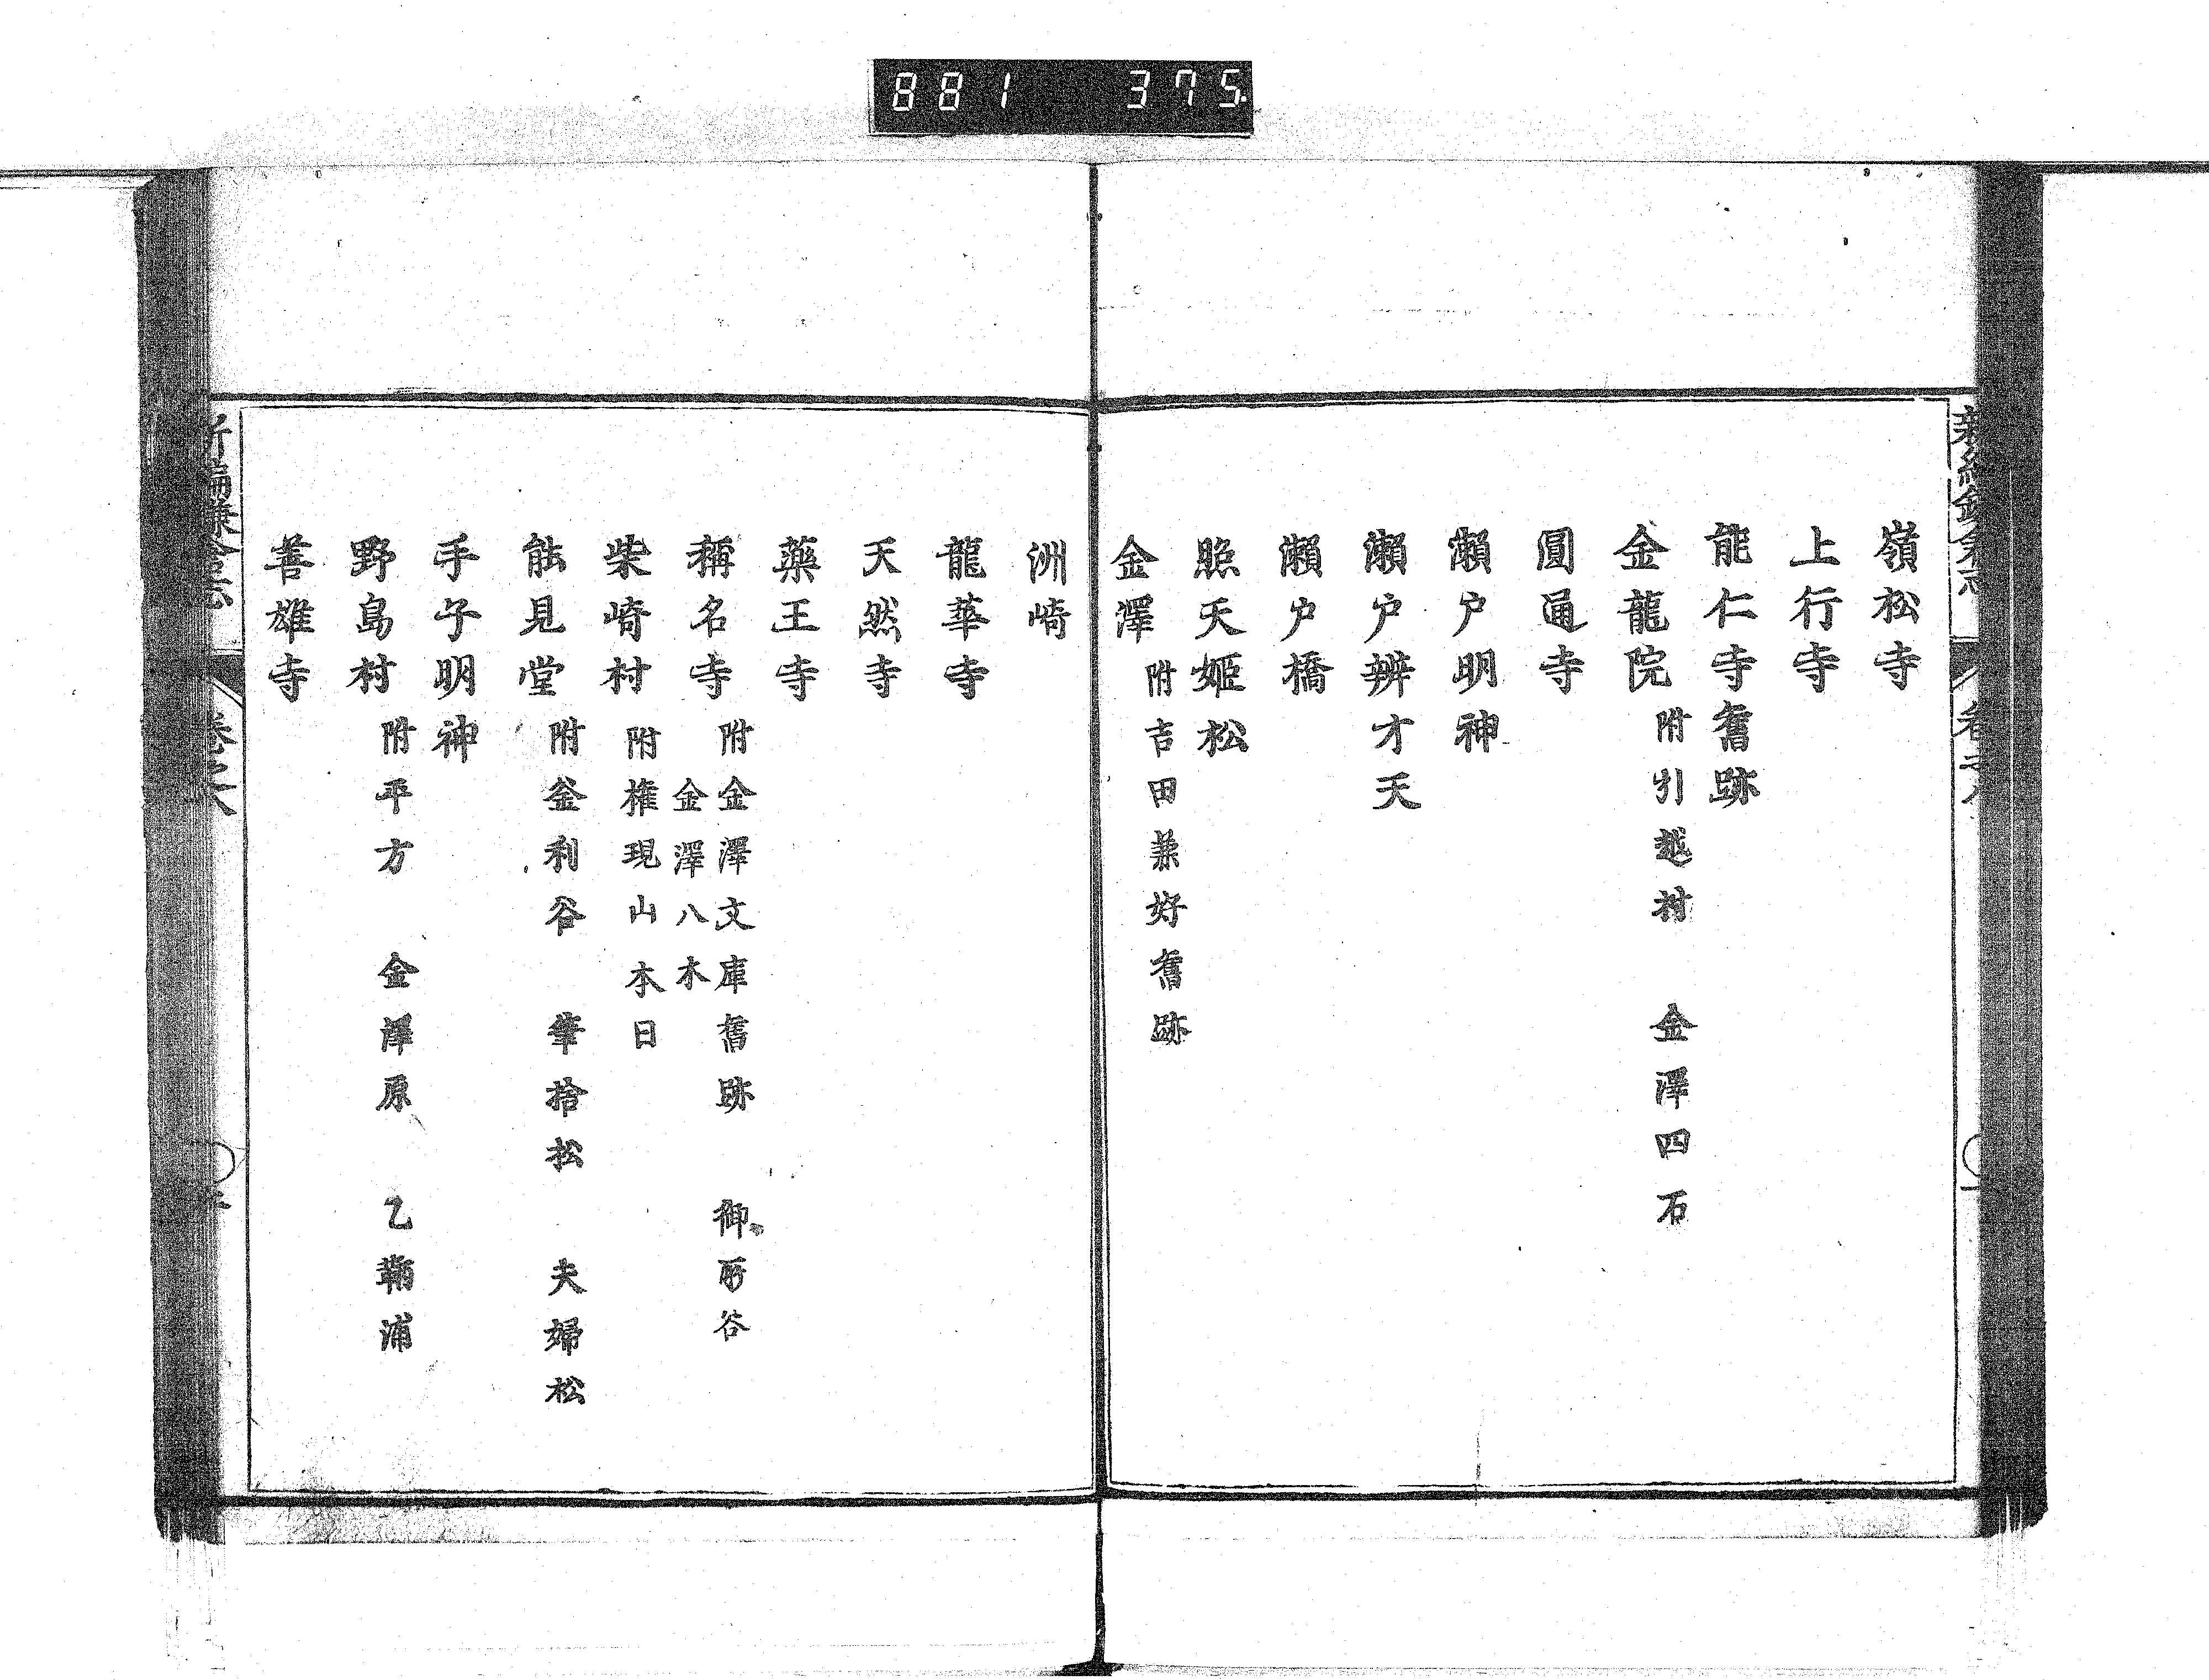 881 375
嶺松寺
上行寺
能仁寺舊跡
金龍院 附引越村 金澤四石
圓通寺
瀬戸明神
瀬戸辨才天
瀬戸橋
照天姫松
金澤 附吉田兼好舊跡
洲崎
龍華寺
天然寺
藥王寺
稱名寺 附金澤文庫舊跡 御所谷
金澤八木
柴崎村 附権現山 本目
能見堂 附釜利谷 筆捨松 夫婦松
手子明神
野島村 附平方 金澤原 乙鞆浦
善雄寺
新編鎌倉志 卷之八